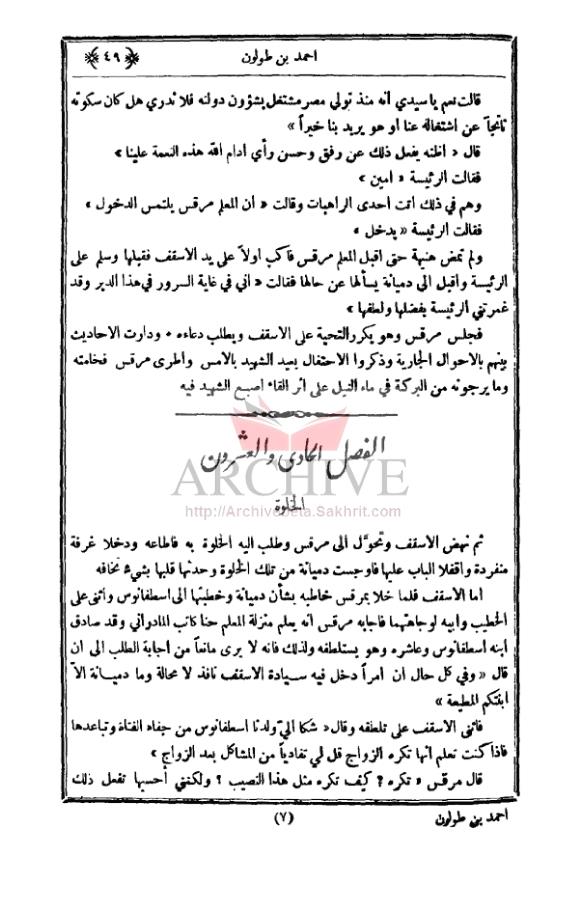 احمد بن طولون
﴿ ٤٩ ﴾
قالت نعم ياسيدي انه منذ تولي مصر مشتغل بشؤون دولته فلا ندري هل كان سكوته
ناتجاً عن اشتغاله عنا او هو يريد بنا خيراً »
قال « اظنه يفعل ذلك عن رفق وحسن رأي ادام الله هذه النعمة علينا »
فقالت الرئيسة « امين »
وهم في ذلك اتت احدى الراهبات وقالت « ان المعلم مرقس يلتمس الدخول »
فقالت الرئيسة « يدخل »
ولم تمض هنيهة حتى اقبل المعلم مرقس فاكب اولاً على يد الاسقف فقبلها وسلم على
الرئيسة وأقبل الى دميانة يسألها عن حالها فقالت « اني في غاية السرور في هذا الدير وقد
غمرتني الرئيسة بفضلها ولطفها »
فجلس مرقس وهو يكرر التحية على الاسقف ويطلب دعاءه ٠ ودارت الاحاديث
بينهم بالاحوال الجارية وذكروا الاحتفال بعيد الشهيد بالامس واطرى مرقس فخامته
وما يرجونه من البركة في ماء النيل على اثر القاء اصبع الشهيد فيه
الفصل الحادي والعشرون
ARCHIVE
http://Archivebeta.Sakhrit.com
الخلوة
ثم نهض الاسقف وتحوَّل الى مرقس وطلب اليه الخلوة به فاطاعه ودخلا غرفة
منفردة واقفلا الباب عليها فاوجست دميانة من تلك الخلوة وحدثها قلبها بشيء تخافه
اما الاسقف فلما خلا بمرقس خاطبه بشأن دميانة وخطبتها الى اسطفانوس واثنى على
الخطيب وابيه لوجاهتهما فاجابه مرقس انه يعلم منزلة المعلم حنا كاتب المادراني وقد صادق
ابنه أسطفانوس وعاشره وهو يستلطفه ولذلك فانه لا يرى مانعاً من اجابة الطلب الى ان
قال « وفي كل حال ان امراً دخل فيه سيادة الاسقف نافذ لا محالة وما دميانة الاَّ
ابنتكم المطيعة »
فاثنى الاسقف على تلطفه وقال « شكا اليَّ ولدنا اسطفانوس من جفاء الفتاة وتباعدها
فاذا كنت تعلم انها تكره الزواج قل لي تفادياً من المشاكل بعد الزواج »
قال مرقس « تكره ؟ كيف تكره مثل هذا النصيب ؟ ولكنني أحسبها تفعل ذلك
احمد بن طولون
(٧)